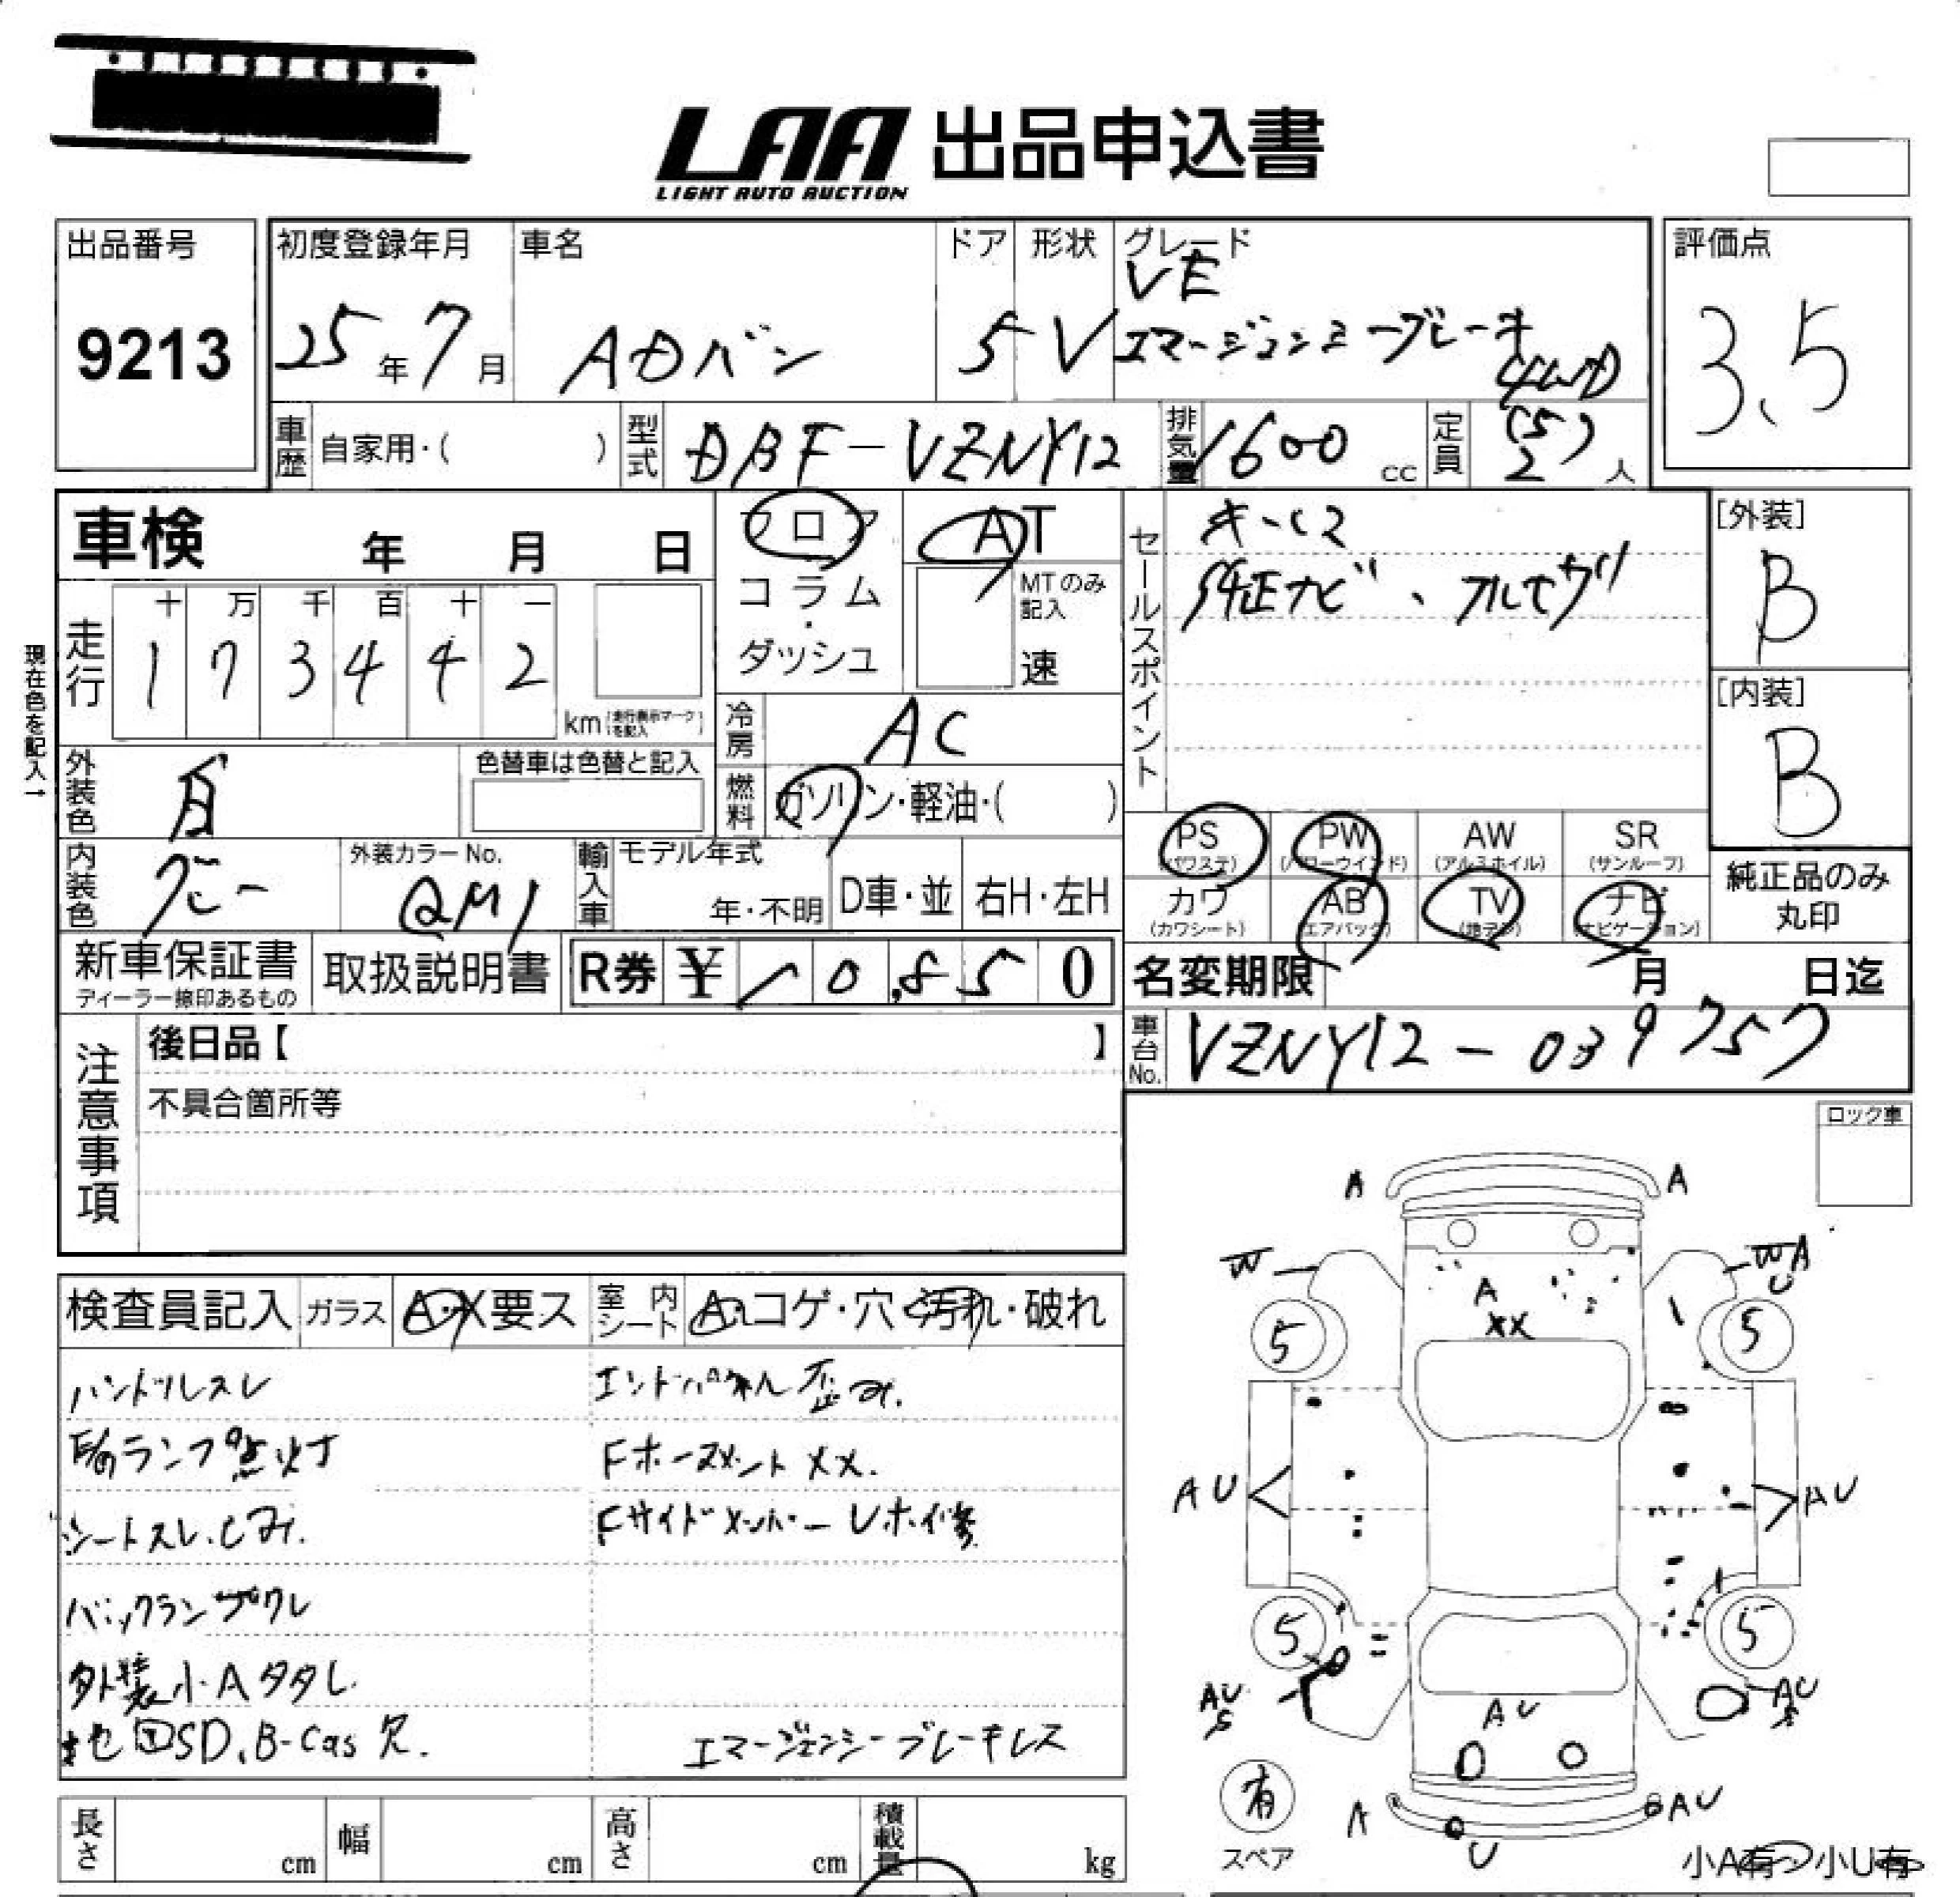 LAA 出品申込書
LIGHT AUTO AUCTION
出品番号
9213
初度登録年月
25年7月
車名
ADバン
ドア
5
形状
V
グレード
VE
エマージェンシーブレーキ
4WD
評価点
3.5
車歴 自家用・( )
型式 DBF-VZNY12
排気量 1600 cc
定員 (5) 2 人
車検 年 月 日
フロア
コラム
・
ダッシュ
AT
MTのみ記入
速
走行
十 万 千 百 十 一
1 7 3 4 4 2
km (走行表示マークを記入)
現在色を記入→
冷房 AC
外装色 白
色替車は色替と記入
燃料 ガソリン・軽油・( )
内装色 グレー
外装カラーNo.
QM1
輸入車 モデル年式
年・不明
D車・並
右H・左H
新車保証書
ディーラー捺印あるもの
取扱説明書
R券 ¥10,850
セールスポイント
キーх2
純正ナビ、フルセグ
[外装]
B
[内装]
B
PS (パワステ)
PW (パワーウインド)
AW (アルミホイル)
SR (サンルーフ)
カワ (カワシート)
AB (エアバック)
TV (地デジ)
ナビ (ナビゲーション)
純正品のみ
丸印
名変期限 月 日迄
車台No. VZNY12-039757
注意事項
後日品【 】
不具合箇所等
ロック車
検査員記入
ガラス A・X要ス
室内シート A・コゲ・穴・汚れ・破れ
ハンドルスレ
ランプ点灯
シートスレ.シミ.
バックランプワレ
外装小Aタタし
地デジSD,B-Cas欠.
エンドパネル歪み.
Fホースメントxx.
Fサイドメンバーレホイ修
エマージェンシーブレーキレス
A
A
W
W A
U
A
XX
5
5
AU
AU
5
5
AU
S
AU
S
AU
A
U
AU
有
スペア
小A有 小U有
長さ cm
幅 cm
高さ cm
積載量 kg